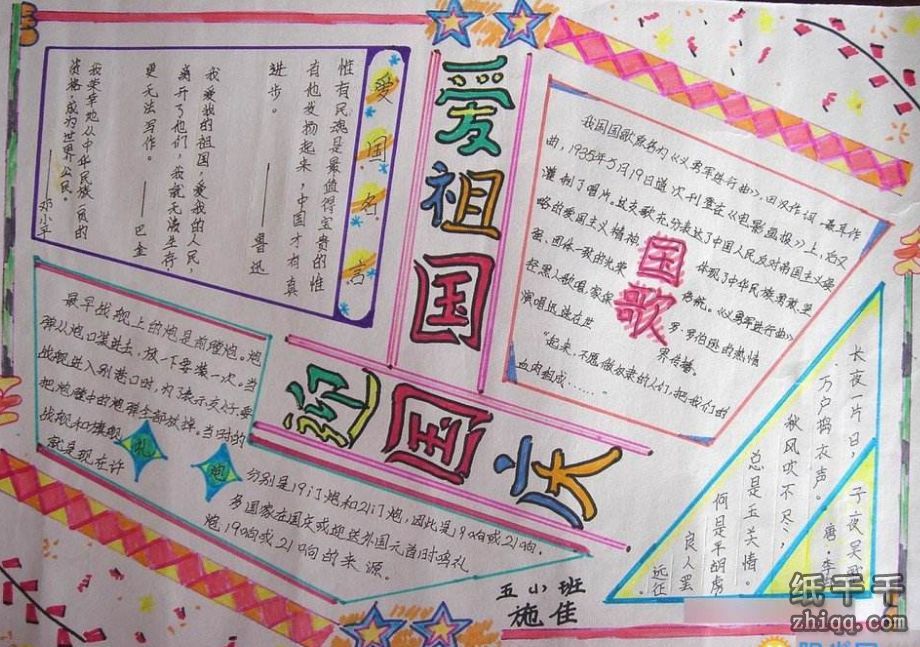 爱祖国
迎国庆
爱国名言
惟有民魂是最值得宝贵的惟
有他发扬起来，中国才有真
进步。
——鲁迅
我爱我的祖国，爱我的人民，
离开了他们，我就无法生存
更无法写作。
——巴金
我荣幸地从中华民族一员的
资格，成为世界公民。
——邓小平
国歌
我国国歌原名为《义勇军进行曲》，田汉作词、聂耳作
曲，1935年5月19日首次刊登在《电影画报》上，后又
灌制了唱片。其支歌充分表达了中国人民反对帝国主义侵
略的爱国主义精神，体现了中华民族勇敢坚
强、团体一致的光荣《义勇军进行曲》
轻黑人歌唱家保罗·罗伯逊的热情
演唱迅速在世界传播。
“起来，不愿做奴隶的人们，把我们的
血肉组成……”
礼炮
最早战舰上的炮是前膛炮。炮
弹从炮口装进去，放一下要装一次。当
战舰进入别港口时，为了表示友好，要
把炮膛中的炮弹全部放掉。当时的
战舰和旗舰
就是现在许
分别是19门炮和21门炮，因此是19响或21响，
多国家在国庆或迎送外国元首时鸣礼
炮19响或21响的来源。
子夜吴歌
唐·李
长夜一片日，
万户捣衣声。
秋风吹不尽，
总是玉关情。
何是平胡虏
良人罢
远征
五小班
施佳
纸千千
zhiqq.com